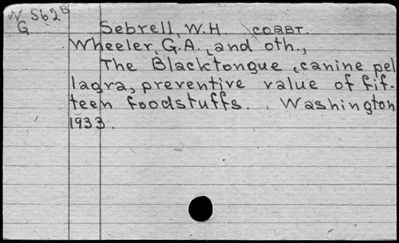 N 562ᴮ
G
Sebrell, W.H. соавт.
Wheeler, G.A. and oth.,
The Blacktongue, canine pel
lagra, preventive value of fif-
teen foodstuffs. Washington
1933.